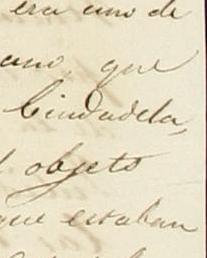 era uno de
ano, que
Ciudadela,
l objeto
que estaban